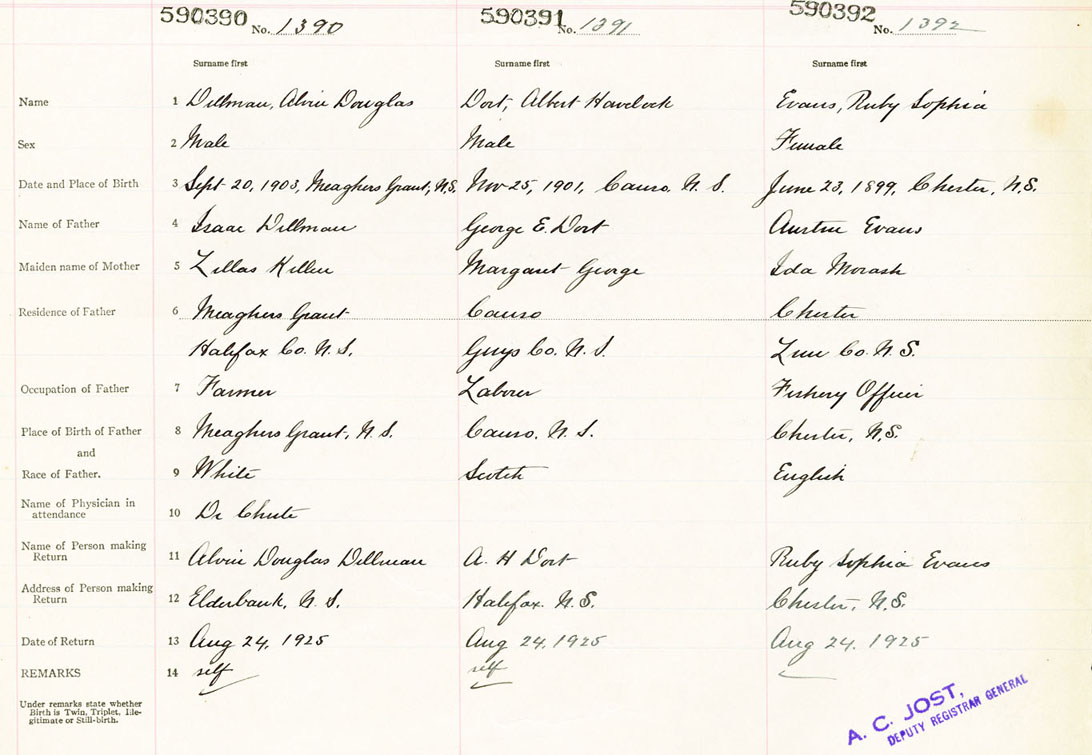 590390 No. 1390 590391 No. 1391 590392 No. 1392
Surname first Surname first Surname first
Name 1 Dillman, Alvin Douglas Dort, Albert Havelock Evans, Ruby Sophia
Sex 2 Male Male Female
Date and Place of Birth 3 Sept 20, 1903, Meaghers Grant, N.S. Nov 25, 1901, Canso, N.S. June 23, 1899, Chester, N.S.
Name of Father 4 Isaac Dillman George E. Dort Austin Evans
Maiden name of Mother 5 Zillas Killen Margaret George Ida Morash
Residence of Father 6 Meaghers Grant Canso Chester
Halifax Co. N.S. Guys Co. N.S. Lun Co. N.S.
Occupation of Father 7 Farmer Laborer Fishery Officer
Place of Birth of Father 8 Meaghers Grant, N.S. Canso, N.S. Chester, N.S.
and
Race of Father. 9 White Scotch English
Name of Physician in
attendance 10 Dr Chute
Name of Person making
Return 11 Alvin Douglas Dillman A. H Dort Ruby Sophia Evans
Address of Person making
Return 12 Elderbank, N.S. Halifax. N.S. Chester, N.S.
Date of Return 13 Aug 24, 1925 Aug 24, 1925 Aug 24. 1925
REMARKS 14 self self
Under remarks state whether
Birth is Twin, Triplet, Ille-
gitimate or Still-birth.
A. C. JOST,
DEPUTY REGISTRAR GENERAL